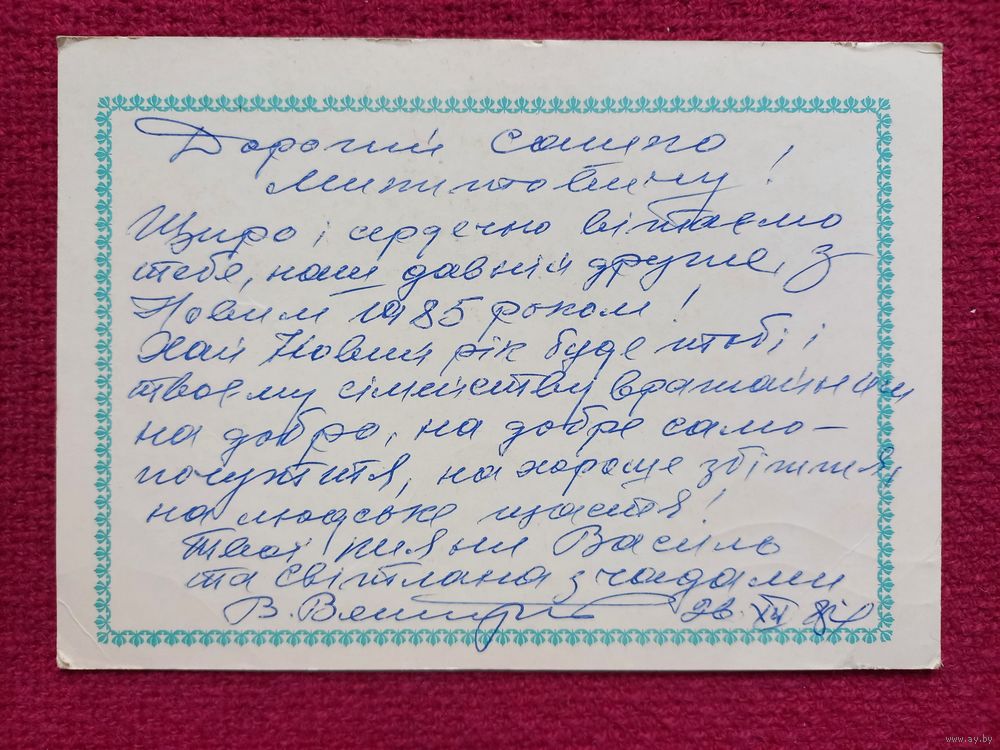 Дорогий
Щиро і сердечно вітаємо
тебе, наш давній друже, з
Новим 1985 роком!
Хай Новий рік буде тобі і
твоєму сімейству врожайним
на добро, на добре само-
почуття, на хороше збіжжя,
на людське щастя!
Твої Василь
та Світлана з чадами
В. XII 84
www.ay.by